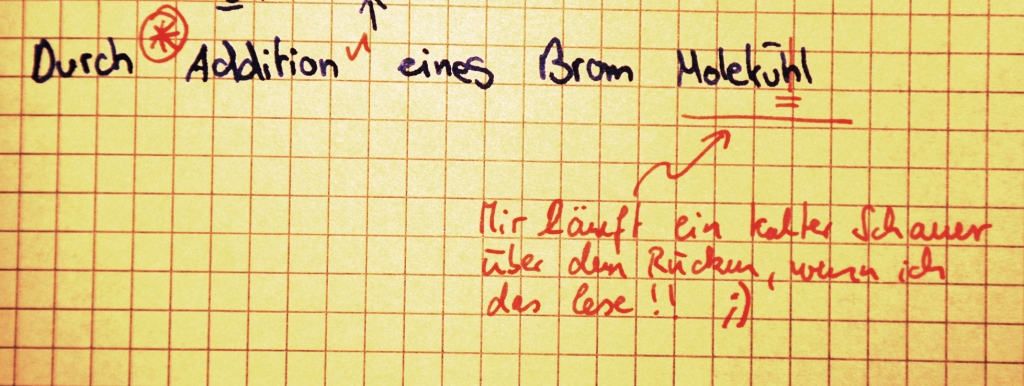 Durch Addition eines Brom Molekühl
Mir läuft ein kalter Schauer
über den Rücken, wenn ich
das lese!! ;)